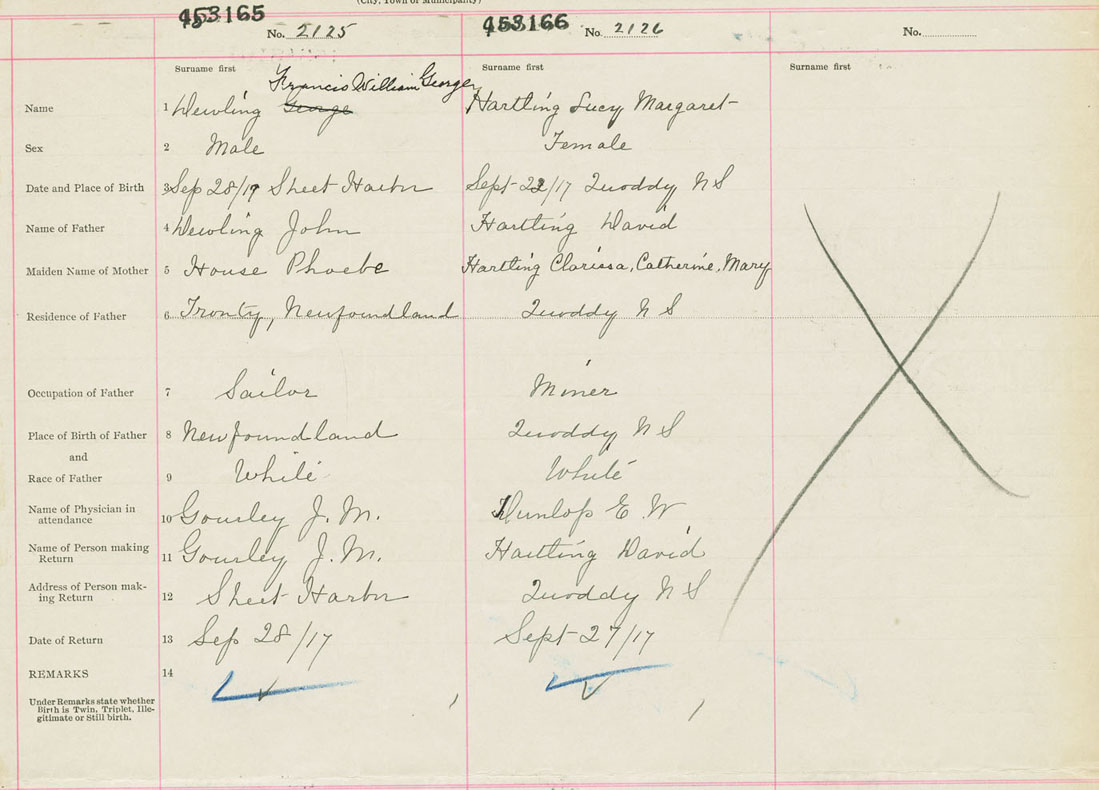 (City, Town or Municipality)
453165
No. 2125
453166
No. 2126
No.
Surname first
Surname first
Surname first
Francis William George
Name 1 Dewling George Hartling Lucy Margaret
Sex 2 Male Female
Date and Place of Birth 3 Sep 28/17 Sheet Harbor Sept 22/17 Quoddy N S
Name of Father 4 Dewling John Hartling David
Maiden Name of Mother 5 House Phoebe Hartling Clarissa, Catherine, Mary
Residence of Father 6 Newfoundland Quoddy N S
Occupation of Father 7 Sailor Miner
Place of Birth of Father 8 Newfoundland Quoddy N S
and
Race of Father 9 White White
Name of Physician in
attendance 10 Gourley J. M. Dunlop E W
Name of Person making
Return 11 Gourley J. M. Hartling David
Address of Person mak-
ing Return 12 Sheet Harbor Quoddy N S
Date of Return 13 Sep 28/17 Sept 27/17
REMARKS 14
Under Remarks state whether
Birth is Twin, Triplet, Ille-
gitimate or Still birth.